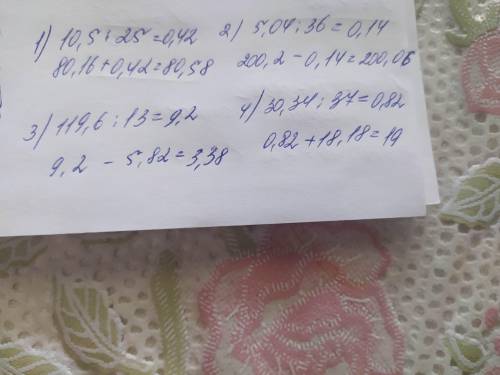 1) 10,5 : 25 = 0,42
80,16 + 0,42 = 80,58
2) 5,04 : 36 = 0,14
200,2 - 0,14 = 200,06
3) 119,6 : 13 = 9,2
9,2 - 5,82 = 3,38
4) 30,34 : 37 = 0,82
0,82 + 18,18 = 19